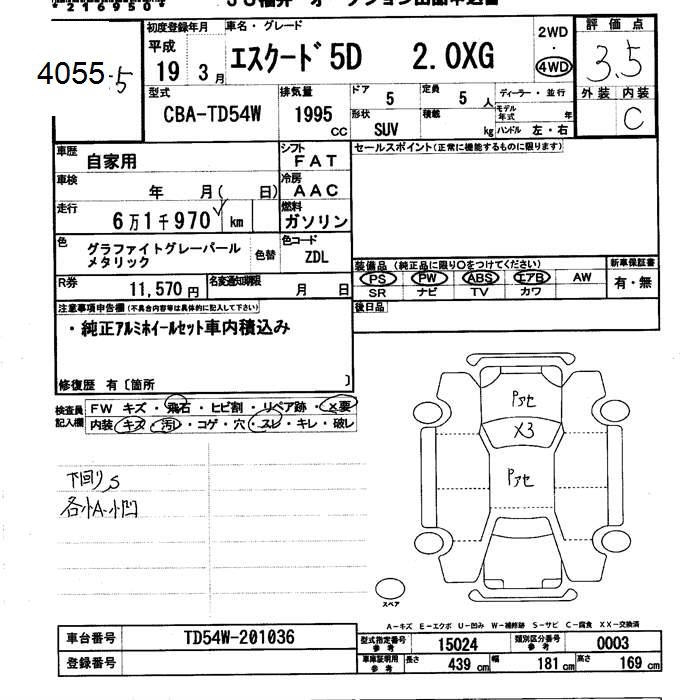 22169504
4055
5
初度登録年月 車名・グレード
平成 19 3月 エスクード 5D 2.0XG
2WD ・ 4WD
評価点
3.5
外装 内装
C
型式 CBA-TD54W
排気量 1995 CC
ドア 5 定員 5 人
形状 SUV 積載 kg
ディーラー・並行
モデル年式 年
ハンドル 左・右
車歴 自家用
シフト FAT
セールスポイント(正常に機能するものに限ります)
車検 年 月( 日)
冷房 AAC
走行 6万1千970 km
燃料 ガソリン
色 グラファイトグレーパールメタリック 色替
色コード ZDL
装備品 (純正品に限り○をつけてください) 新車保証書
PS PW ABS エアB AW 有・無
SR ナビ TV カワ
R券 11,570円 名変通知期限 月 日
後日品
注意事項申告欄(不具合内容等は具体的に記入して下さい)
・純正アルミホイールセット車内積込み
修復歴 有〔箇所 〕
検査員記入欄
FW キズ・飛石・ヒビ割・リペア跡・×要
内装 キズ・汚レ・コゲ・穴・スレ・キレ・破レ
Pアセ
X3
Pアセ
下回りS
各小A・小凹
スペア
A-キズ E-エクボ U-凹み W-補修跡 S-サビ C-腐食 XX-交換済
車台番号 TD54W-201036
登録番号
型式指定番号 参考 15024 類別区分番号 参考 0003
車庫証明用 参考 長さ 439 cm 幅 181 cm 高さ 169 cm